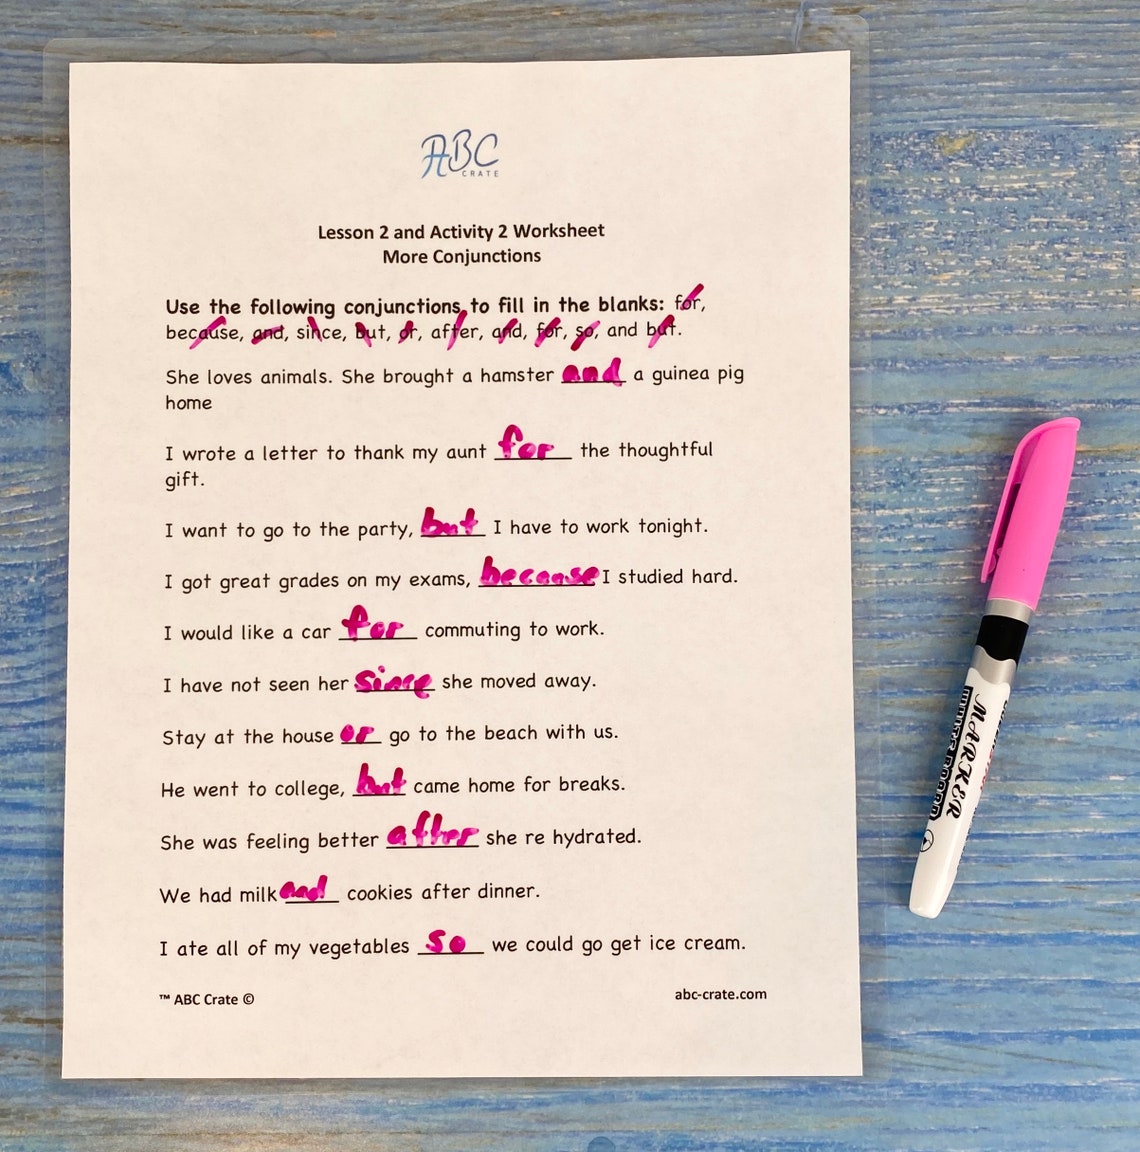 ABC
CRATE
Lesson 2 and Activity 2 Worksheet
More Conjunctions
Use the following conjunctions to fill in the blanks: for,
because, and, since, but, or, after, and, for, so, and but.
She loves animals. She brought a hamster and a guinea pig
home
I wrote a letter to thank my aunt for the thoughtful
gift.
I want to go to the party, but I have to work tonight.
I got great grades on my exams, because I studied hard.
I would like a car for commuting to work.
I have not seen her since she moved away.
Stay at the house or go to the beach with us.
He went to college, but came home for breaks.
She was feeling better after she re hydrated.
We had milk and cookies after dinner.
I ate all of my vegetables so we could go get ice cream.
™ ABC Crate © abc-crate.com
MARKER
WHITE BOARD